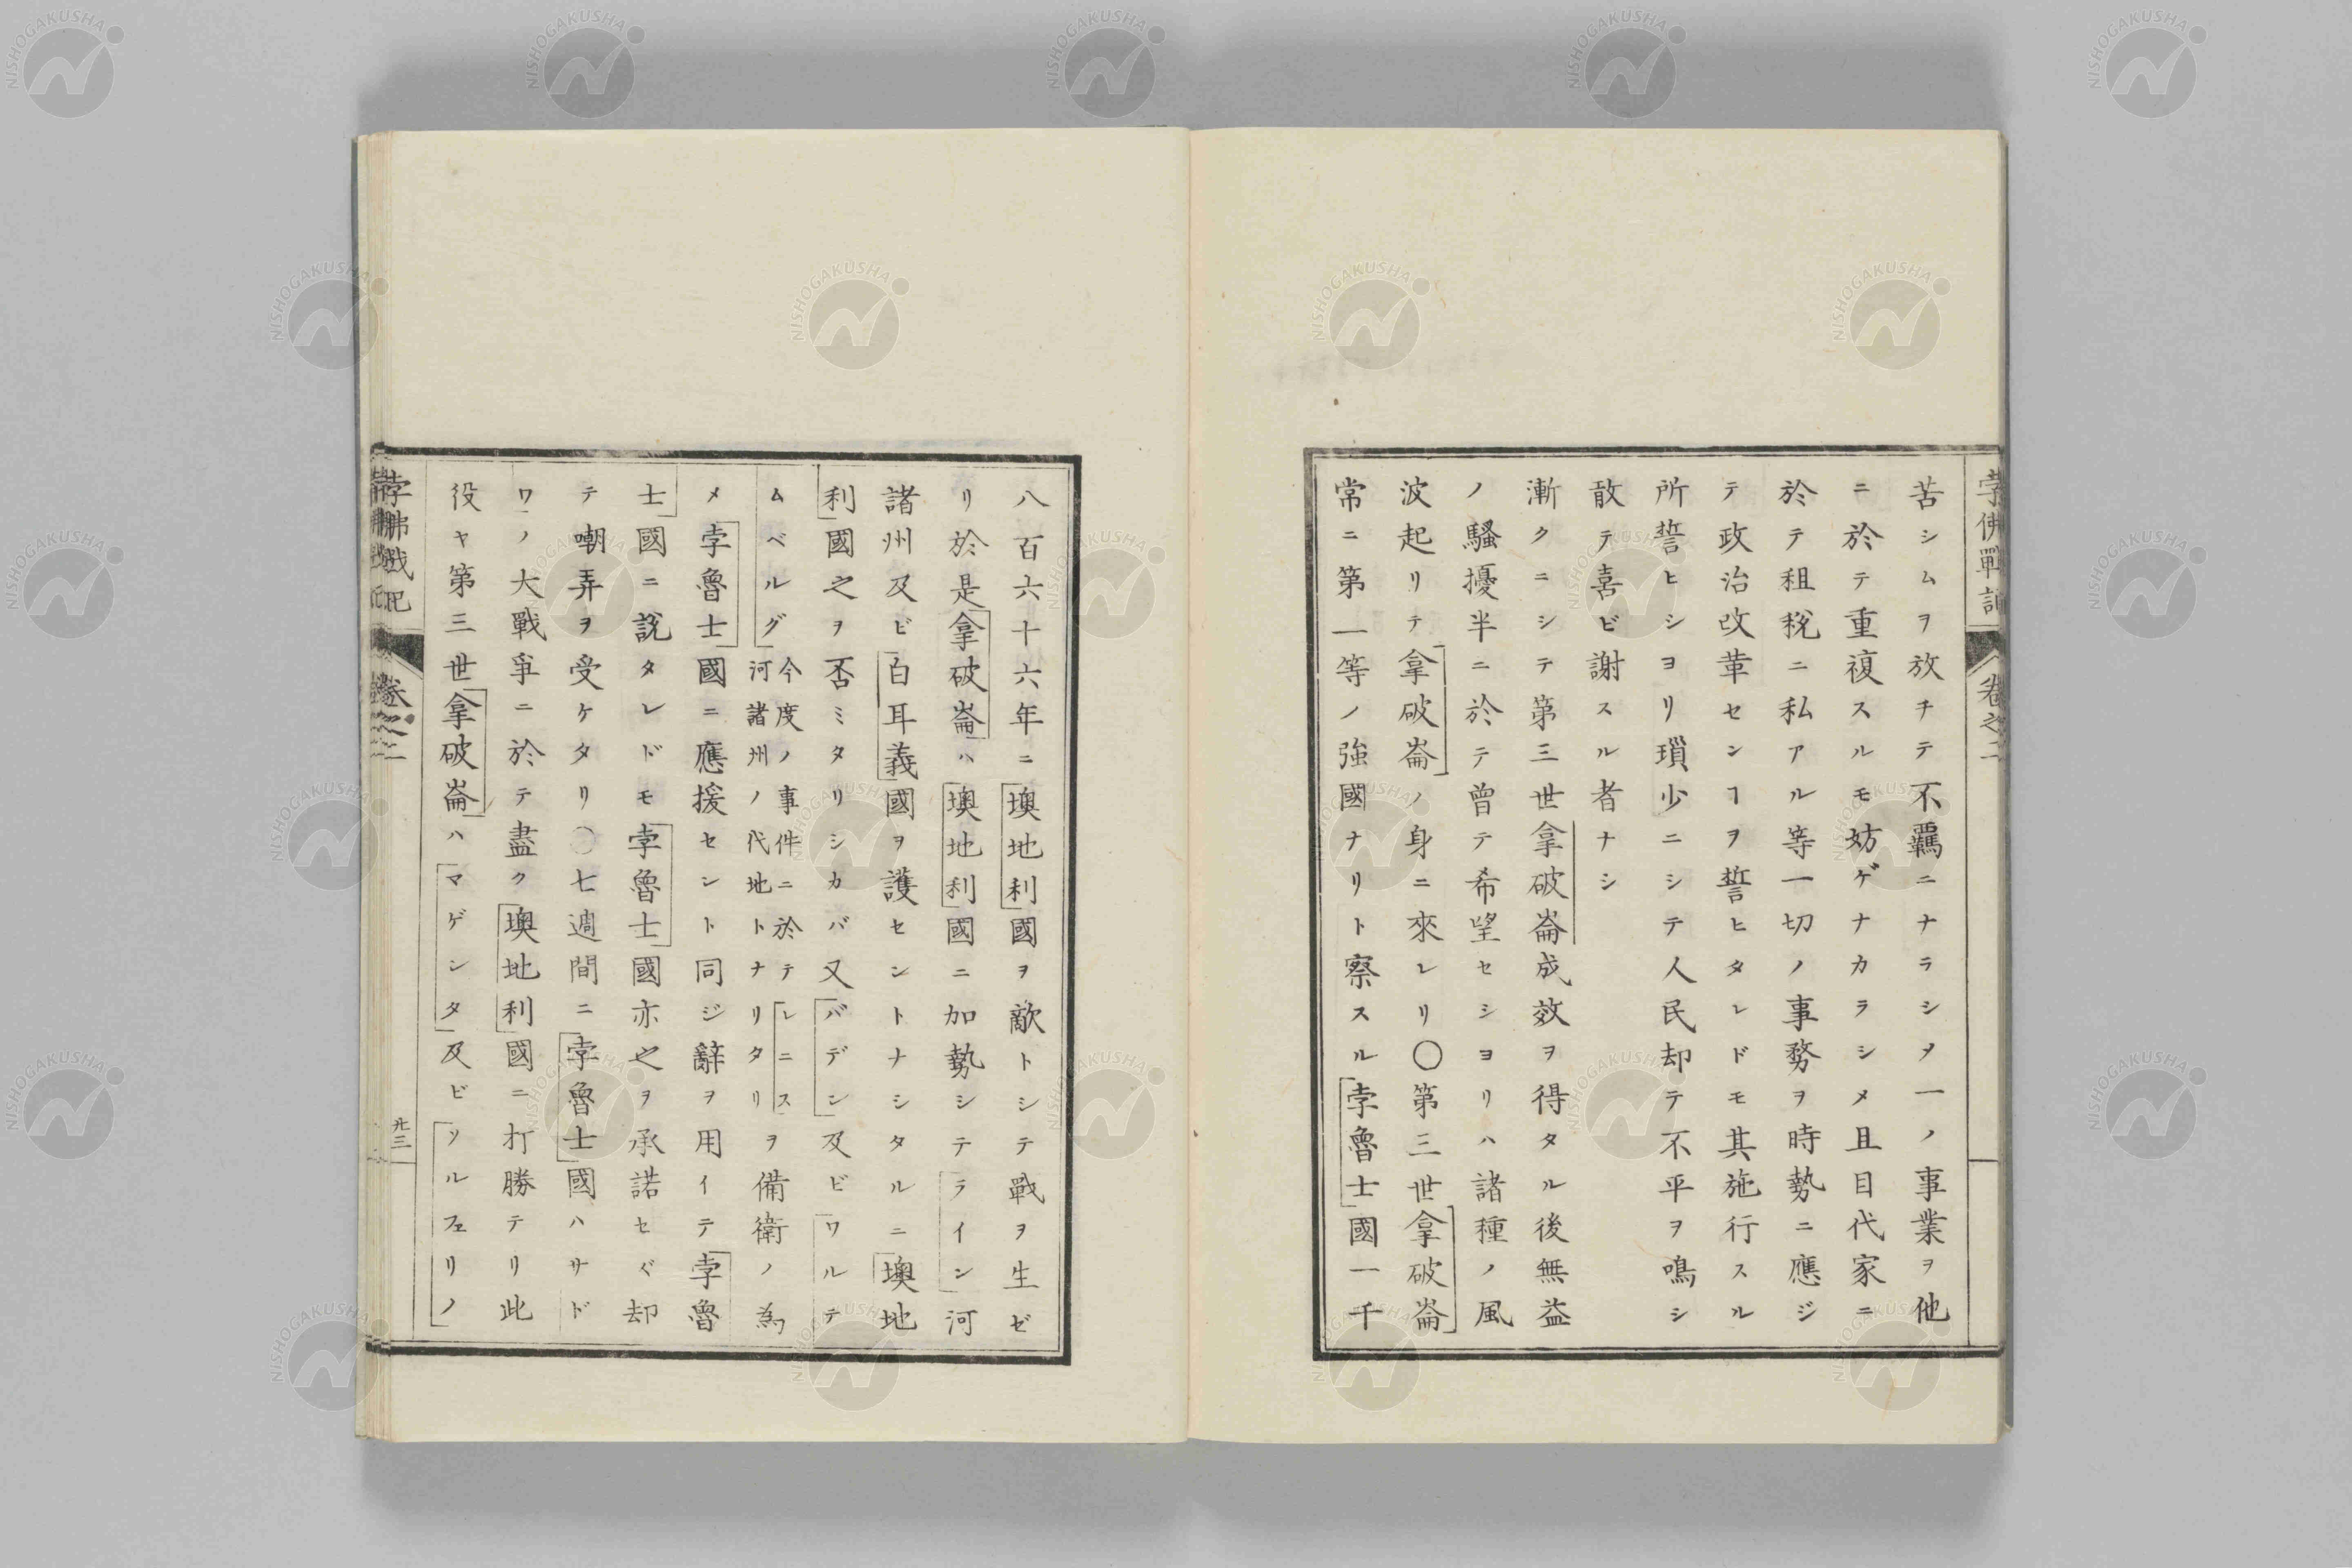 孛佛戰記
卷之二
苦シムヲ放チテ不羈ニナラシメ一ノ事業ヲ他
ニ於テ重複スルモ妨ゲナカラシメ且目代家ニ
於テ租税ニ私アル等一切ノ事務ヲ時勢ニ應ジ
テ政治改革センヿヲ誓ヒタレドモ其施行スル
所誓ヒシヨリ瑣少ニシテ人民却テ不平ヲ鳴シ
敢テ喜ビ謝スル者ナシ
漸クニシテ第三世拿破崙成效ヲ得タル後無益
ノ騷擾半ニ於テ曾テ希望セシヨリハ諸種ノ風
波起リテ拿破崙ノ身ニ來レリ〇第三世拿破崙
常ニ第一等ノ強國ナリト察スル孛魯士國一千
八百六十六年ニ墺地利國ヲ敵トシテ戰ヲ生ゼ
リ於是拿破崙ハ墺地利國ニ加勢シテライン河
諸州及ビ白耳義國ヲ護セントナシタルニ墺地
利國之ヲ否ミタリシカバ又バデン及ビワルテ
ムベルグ今度ノ事件ニ於テレニス
河諸州ノ代地トナリタリヲ備衛ノ為
メ孛魯士國ニ應援セント同ジ辭ヲ用イテ孛魯
士國ニ說タレドモ孛魯士國亦之ヲ承諾セズ却
テ嘲弄ヲ受ケタリ〇七週間ニ孛魯士國ハサド
ワノ大戰爭ニ於テ盡ク墺地利國ニ打勝テリ此
役ヤ第三世拿破崙ハマゲンタ及ビソルフェリノ
孛佛戰記
卷之二
廿三